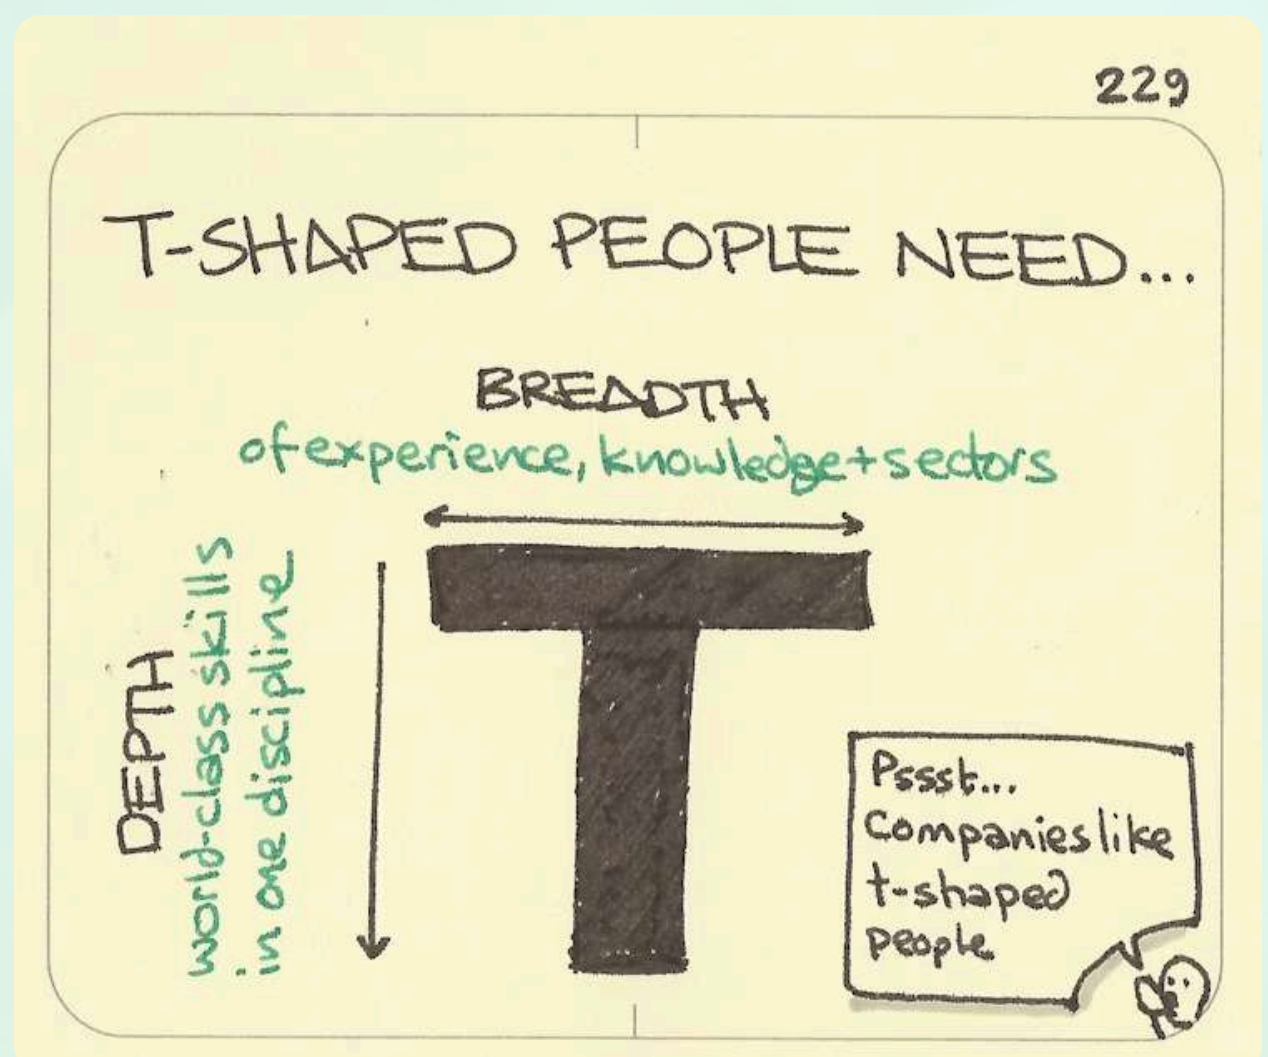 229
T-SHAPED PEOPLE NEED...
BREADTH
of experience, knowledge + sectors
DEPTH
world-class skills
in one discipline
Pssst...
Companies like
t-shaped
people